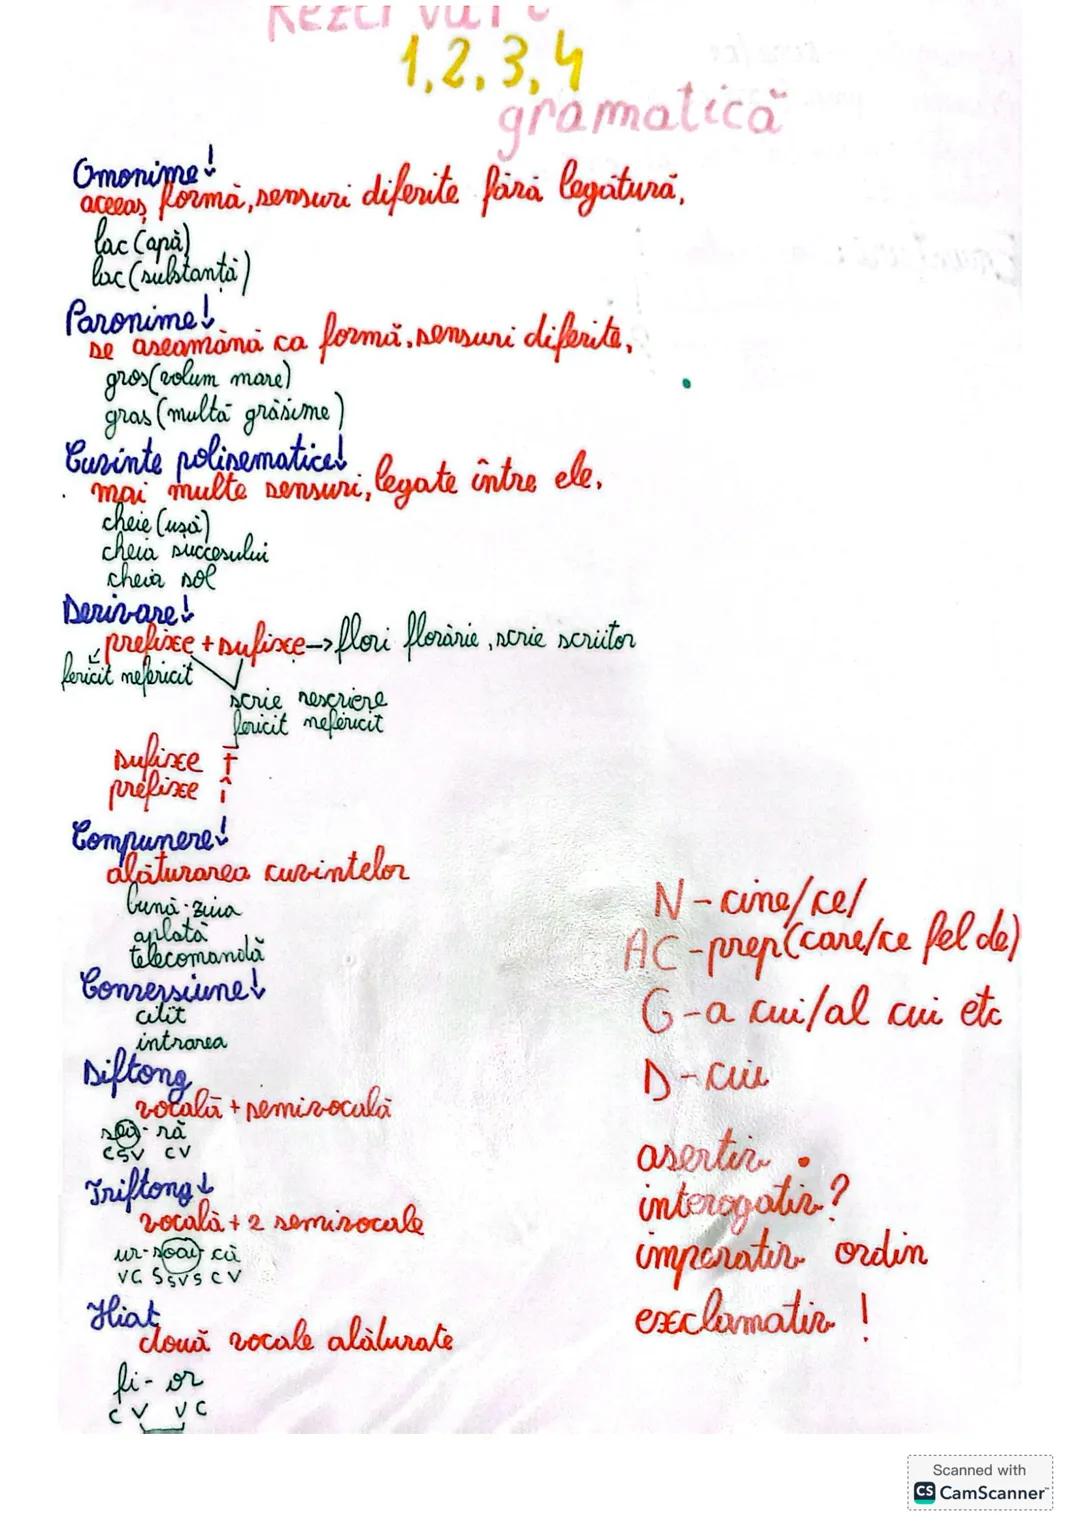 Rezolvări
1, 2, 3, 4
gramatică
Omonime↓
aceeaș formă, sensuri diferite fără legătură,
lac (apă)
lac (substanță)
Paronime↓
se aseamănă ca formă, sensuri diferite,
gros (volum mare)
gras (multă grăsime)
Cuvinte polisematice↓
mai multe sensuri, legate între ele,
cheie (ușă)
cheia succesului
cheia sol
Derivare↓
prefixe + sufixe -> flori florărie, scrie scriitor
fericit nefericit
scrie rescriere
fericit nefericit
sufixe
prefixe
Compunere↓
alăturarea cuvintelor
bună-ziua
telecomandă
Conversiune↓
citit
intrarea
Diftong
vocală + semivocală
sea-ră
CSV CV
Triftong↓
vocală + 2 semivocale
ur-soai-că
VC SSVS CV
Hiat
două vocale alăturate
fi-or
CV VC
N - cine/ce/
AC - prep (care/ce fel de)
G - a cui/al cui etc
D - cui
asertiv .
interogativ ?
imperativ ordin
exclamativ !
Scanned with
CS CamScanner